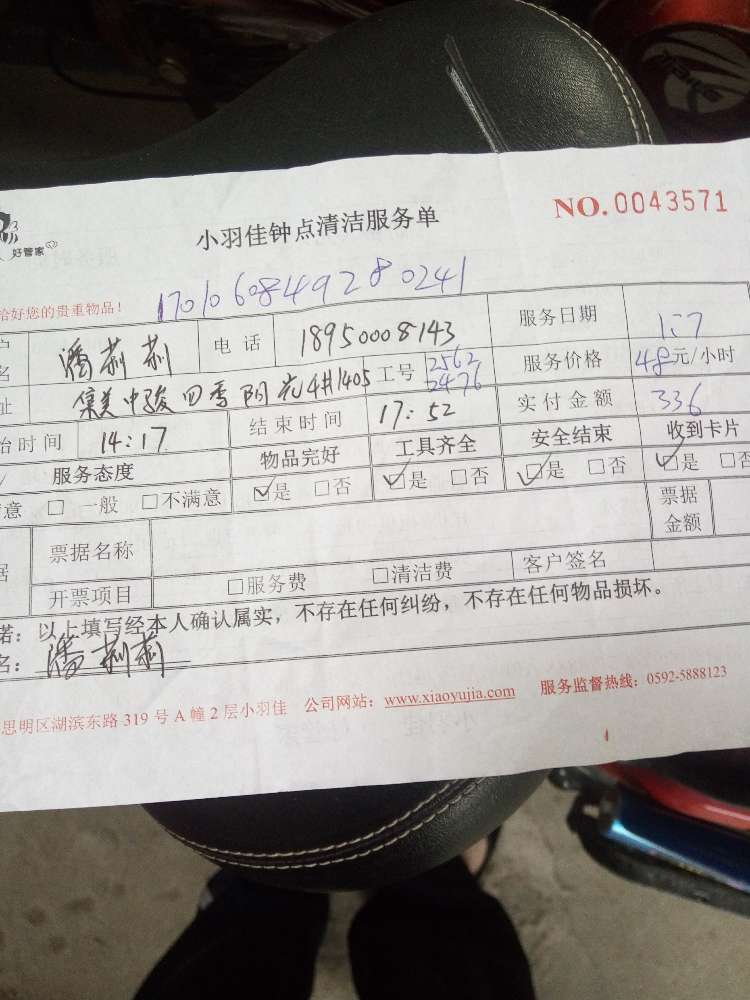 好管家
小羽佳钟点清洁服务单
NO.0043571
1701060849280241
给好您的贵重物品!
名 潘莉莉 电话 18950008143 服务日期 1.7
址 集美中骏四季阳光4#1405 工号 2562 2476 服务价格 48元/小时
始时间 14:17 结束时间 17:52 实付金额 336
服务态度 物品完好 工具齐全 安全结束 收到卡片
意 □一般 □不满意 ☑是 □否 ☑是 □否 ☑是 □否 ☑是 □否
据 票据名称 票据金额
开票项目 □服务费 □清洁费 客户签名
诺:以上填写经本人确认属实,不存在任何纠纷,不存在任何物品损坏。
名: 潘莉莉
思明区湖滨东路319号A幢2层小羽佳 公司网站:www.xiaoyujia.com 服务监督热线:0592-5888123